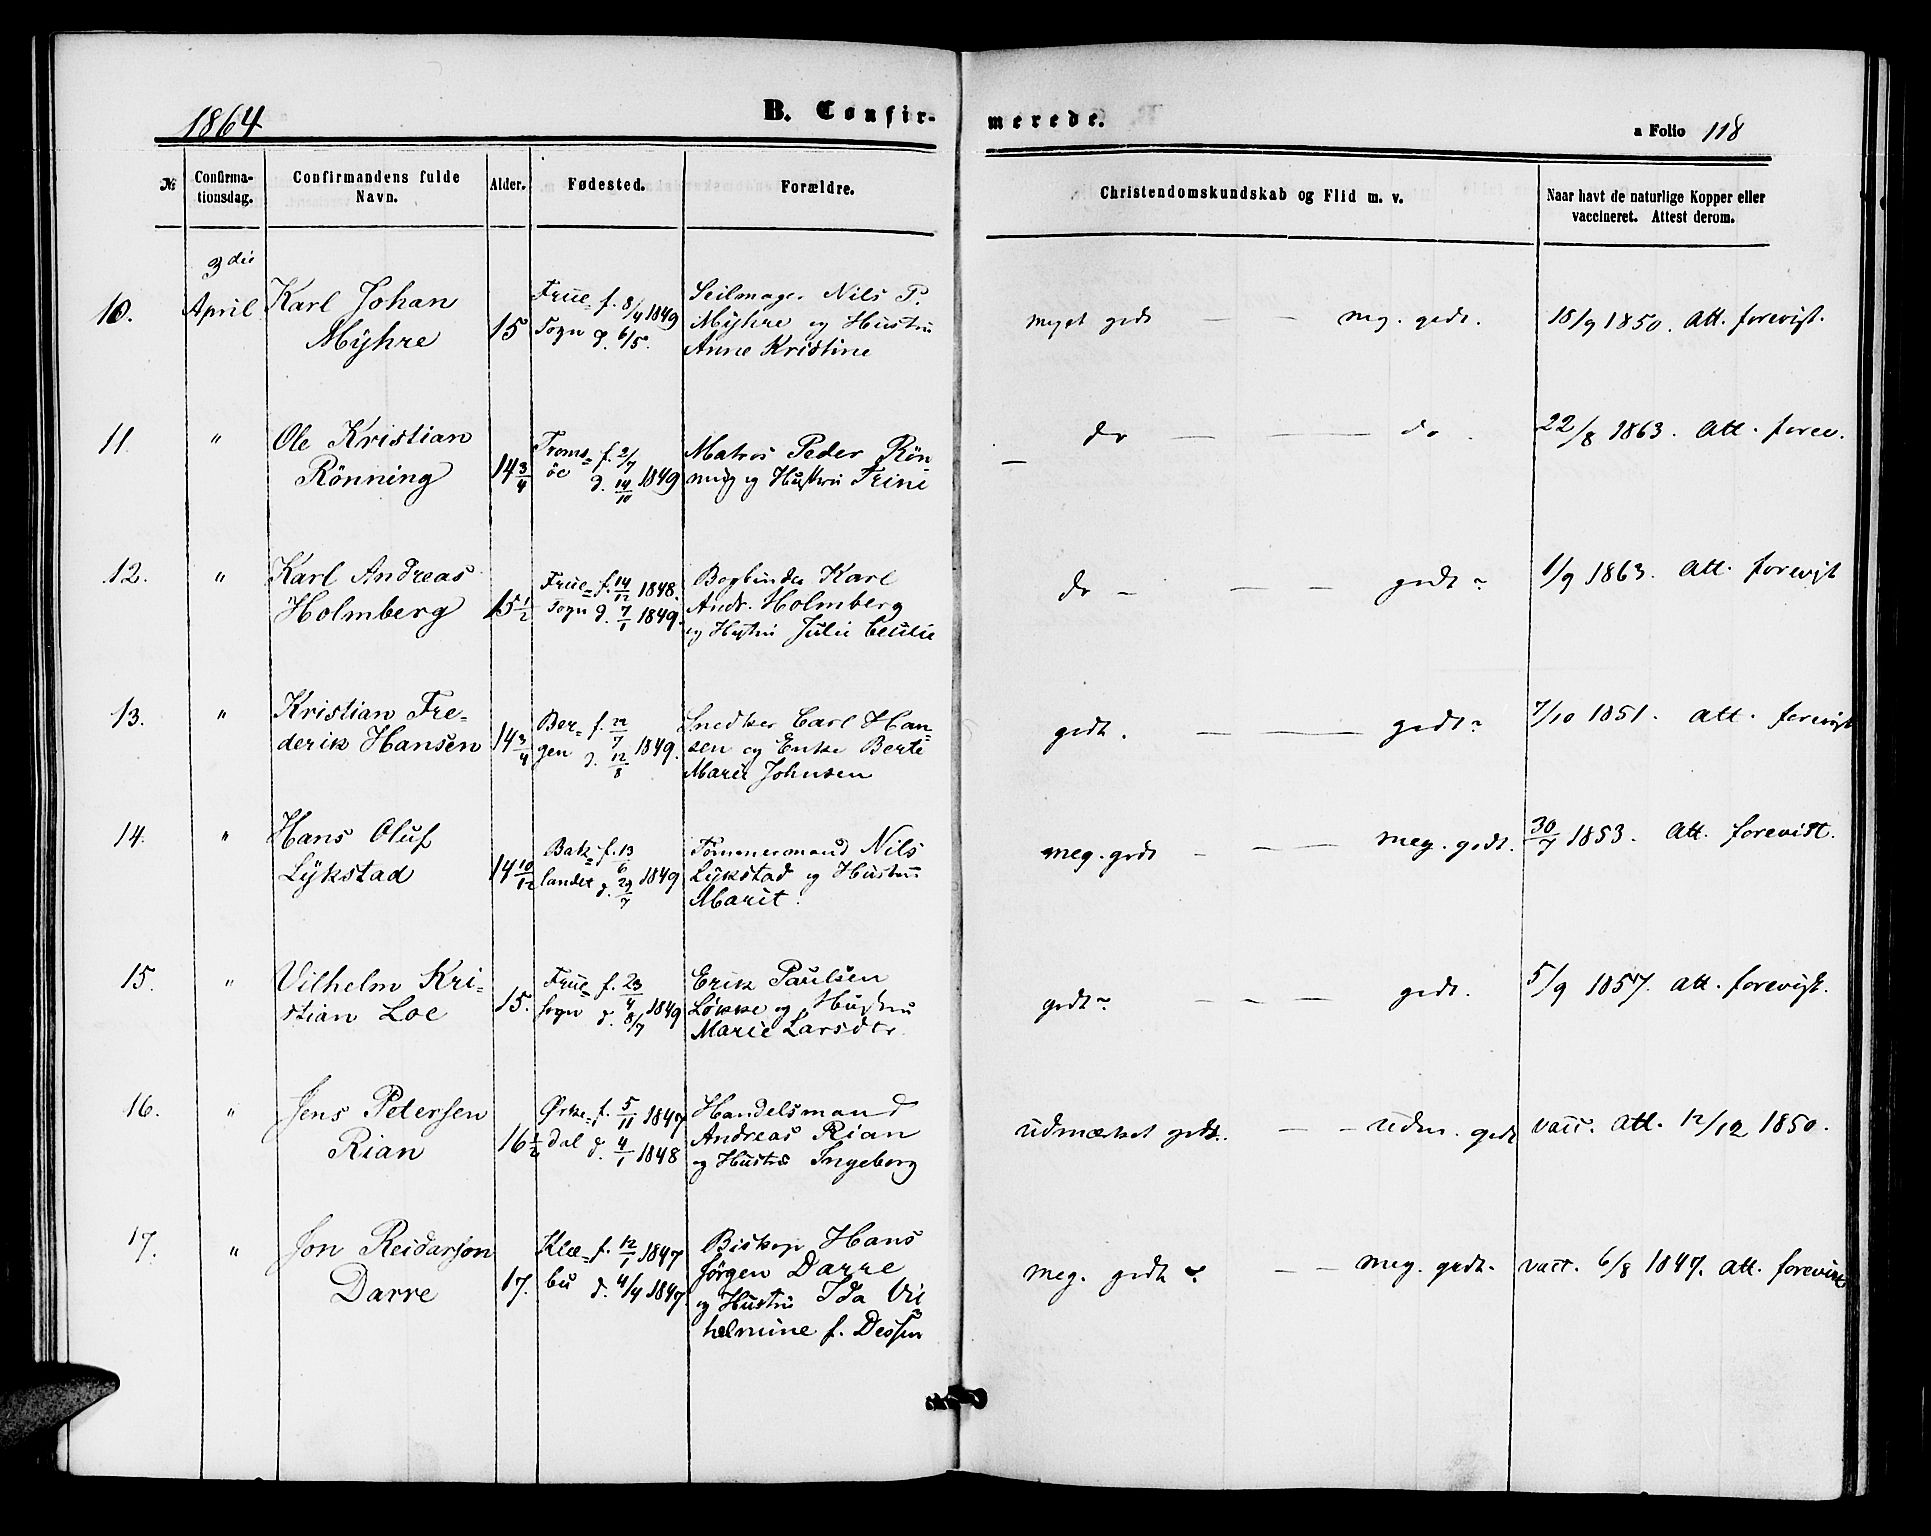 1864
B. Confir-
merede.
a Folio 118
№
Confirma-
tionsdag.
Confirmandens fulde
Navn.
Alder.
Fødested.
Forældre.
Christendomskundskab og Flid m. v.
Naar havt de naturlige Kopper eller
vaccineret. Attest derom.
10. 3die April Karl Johan Mÿhre 15 Frue= Sogn f. 8/4 1849 d. 6/5. Seilmager Nils P. Mÿhre og Hustru Anne Kristine meget godt — — meg. godt. 18/9 1850. Att. forevist.
11. " Ole Kristian Rönning 14 3/4 Troms= öe f. 2/7 d. 14/10 1849 Matros Peder Rön= ning og Hustru Trine do — — — do. 22/8 1863. Att. forev.
12. " Karl Andreas Holmberg 15 1/2 Frue= Sogn f. 14/12 1848. d. 7/1 1849. Bogbinder Karl Andr. Holmberg og Hustru Julie Cecilie do — — — godt 1/9 1863. Att. forevist
13. " Kristian Fre= derik Hansen 14 3/4 Ber= gen f. 22/7 d. 12/8 1849. Snedker Carl Han= sen og Enke Berte Marie Johnsen godt. — — — godt 7/10 1851. Att. forevist
14. " Hans Oluf Lÿkstad 14 10/12 Bak= landet f. 13/6 d. 29/7 1849 Tömmermand Nils Lÿkstad og Hustru Marit. meg. godt — — — meg. godt. 30/7 1853. Att. forevist.
15. " Vilhelm Kri= stian Loe 15. Frue= sogn f. 23/4 d. 8/7 1849 Erik Paulsen Løkke og Hustru Marie Larsdtr. godt — — — godt. 5/9 1857. Att. forevist.
16. " Jens Petersen Rian 16 1/2 Ørke= dal f. 5/11 1847 d. 4/1 1848 Handelsmand Andreas Rian og Hustru Ingeborg udmærket godt. — — udm. godt vacc. Att. 12/12 1850.
17. " Jon Reidarson Darre 17. Klæ= bu f. 12/1 1847 d. 4/4 1847 Biskop Hans Jörgen Darre og Hustru Ida Vil= helmine f. Dessen meg. godt — — meg. godt. vacc. 6/8 1847. Att. forevist